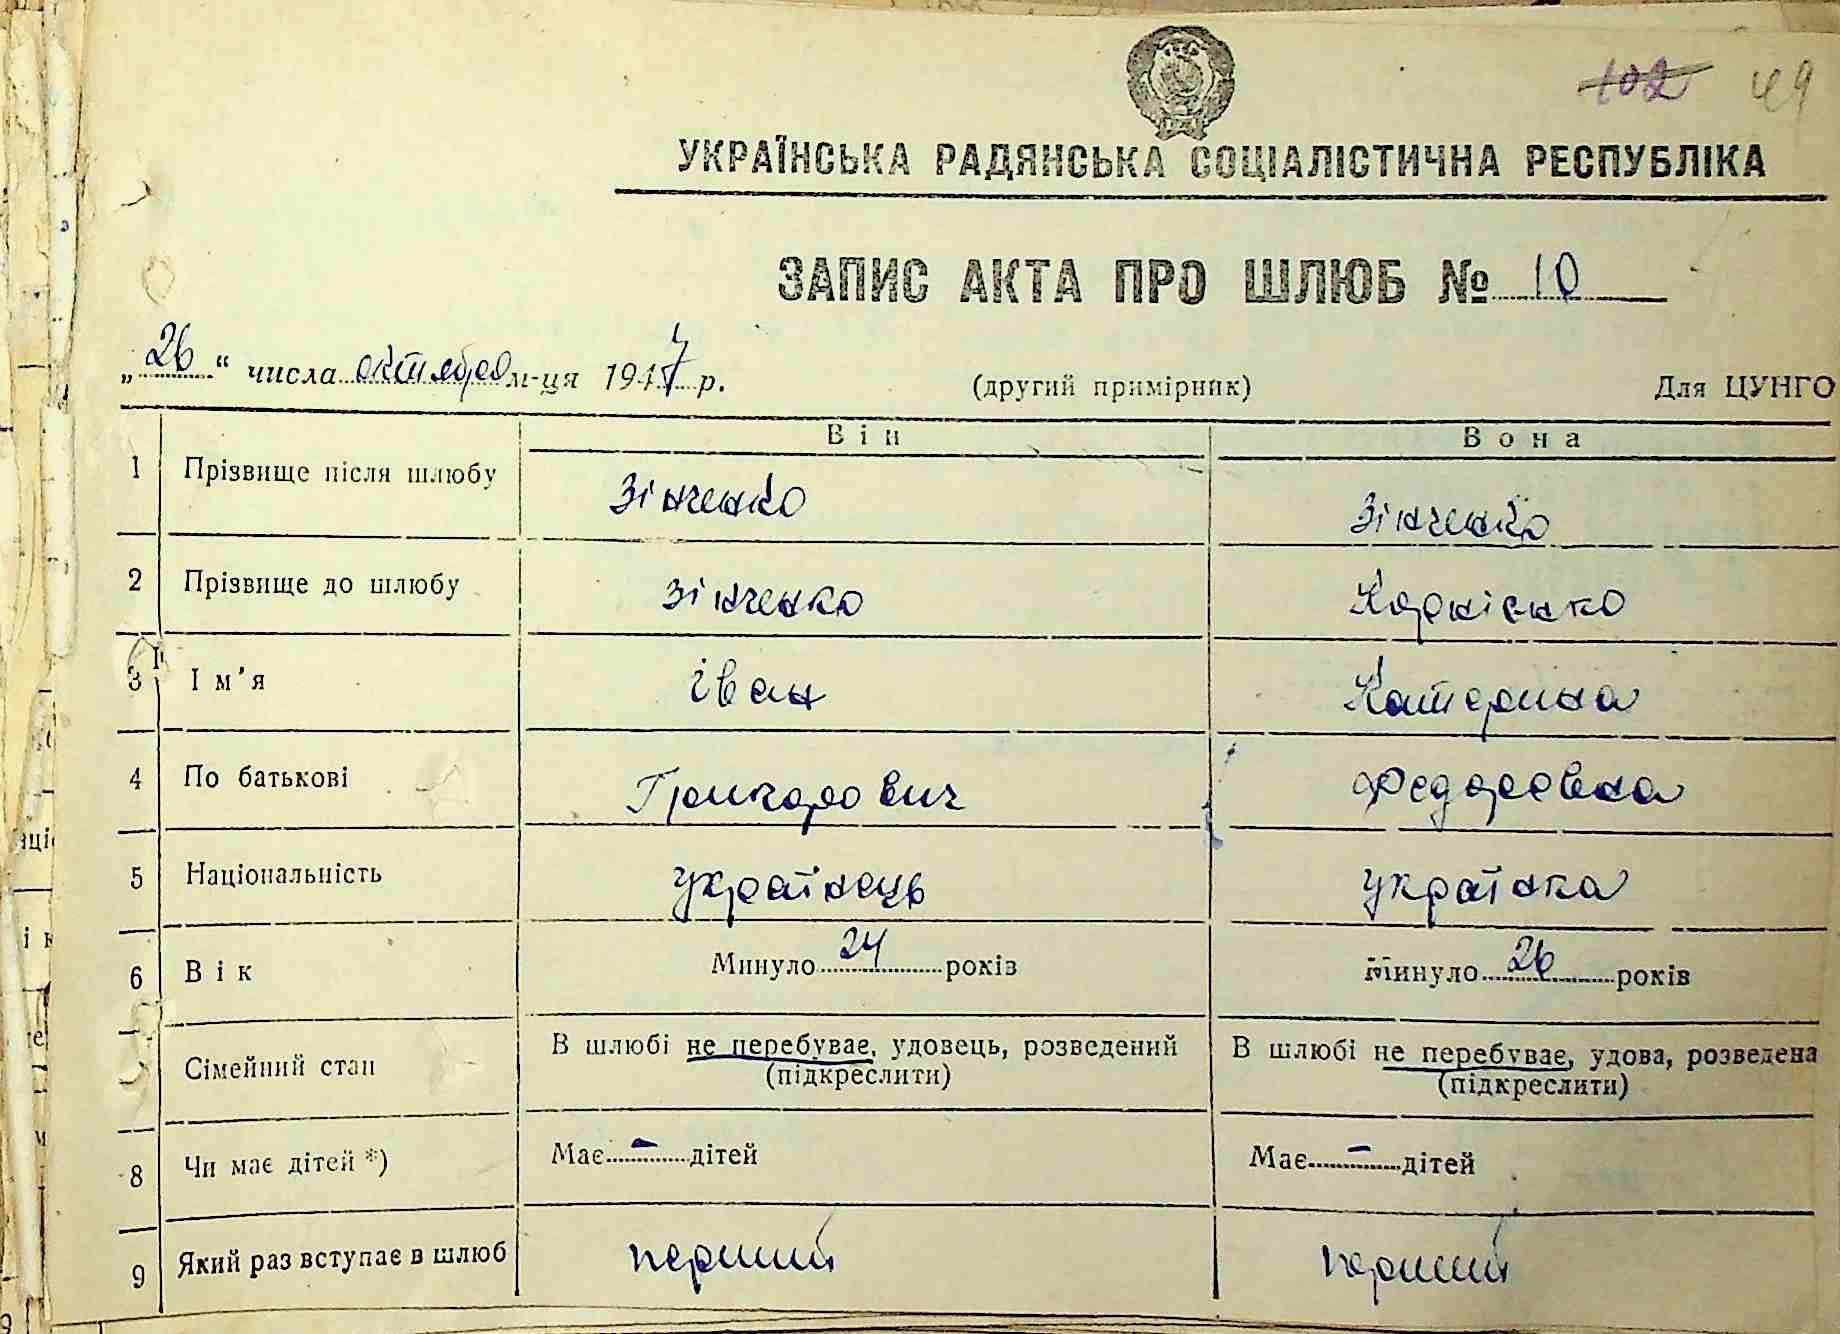 102 49
УКРАЇНСЬКА РАДЯНСЬКА СОЦІАЛІСТИЧНА РЕСПУБЛІКА
ЗАПИС АКТА ПРО ШЛЮБ № 10
„26“ числа октября м-ця 1947 р. (другий примірник) Для ЦУНГО
Він Вона
1 Прізвище після шлюбу Зінченко Зінченко
2 Прізвище до шлюбу Зінченко Корнієнко
3 Ім'я Іван Катерина
4 По батькові Григорович Федоровна
5 Національність українець українка
6 Вік Минуло 24 років Минуло 26 років
Сімейний стан В шлюбі не перебуває, удовець, розведений В шлюбі не перебуває, удова, розведена
(підкреслити) (підкреслити)
8 Чи має дітей *) Має - дітей Має - дітей
9 Який раз вступає в шлюб перший перший